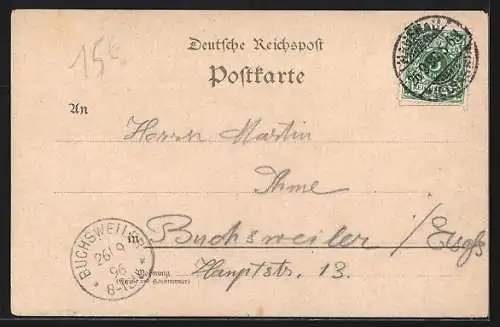 15€
Deutsche Reichspost
Postkarte
An
Herrn Martin
Ihme
in Buchsweiler / Elsaß
Wohnung
(Straße und Hausnummer)
Hauptstr. 13.
BUCHSWEILER
26/9
96
8-